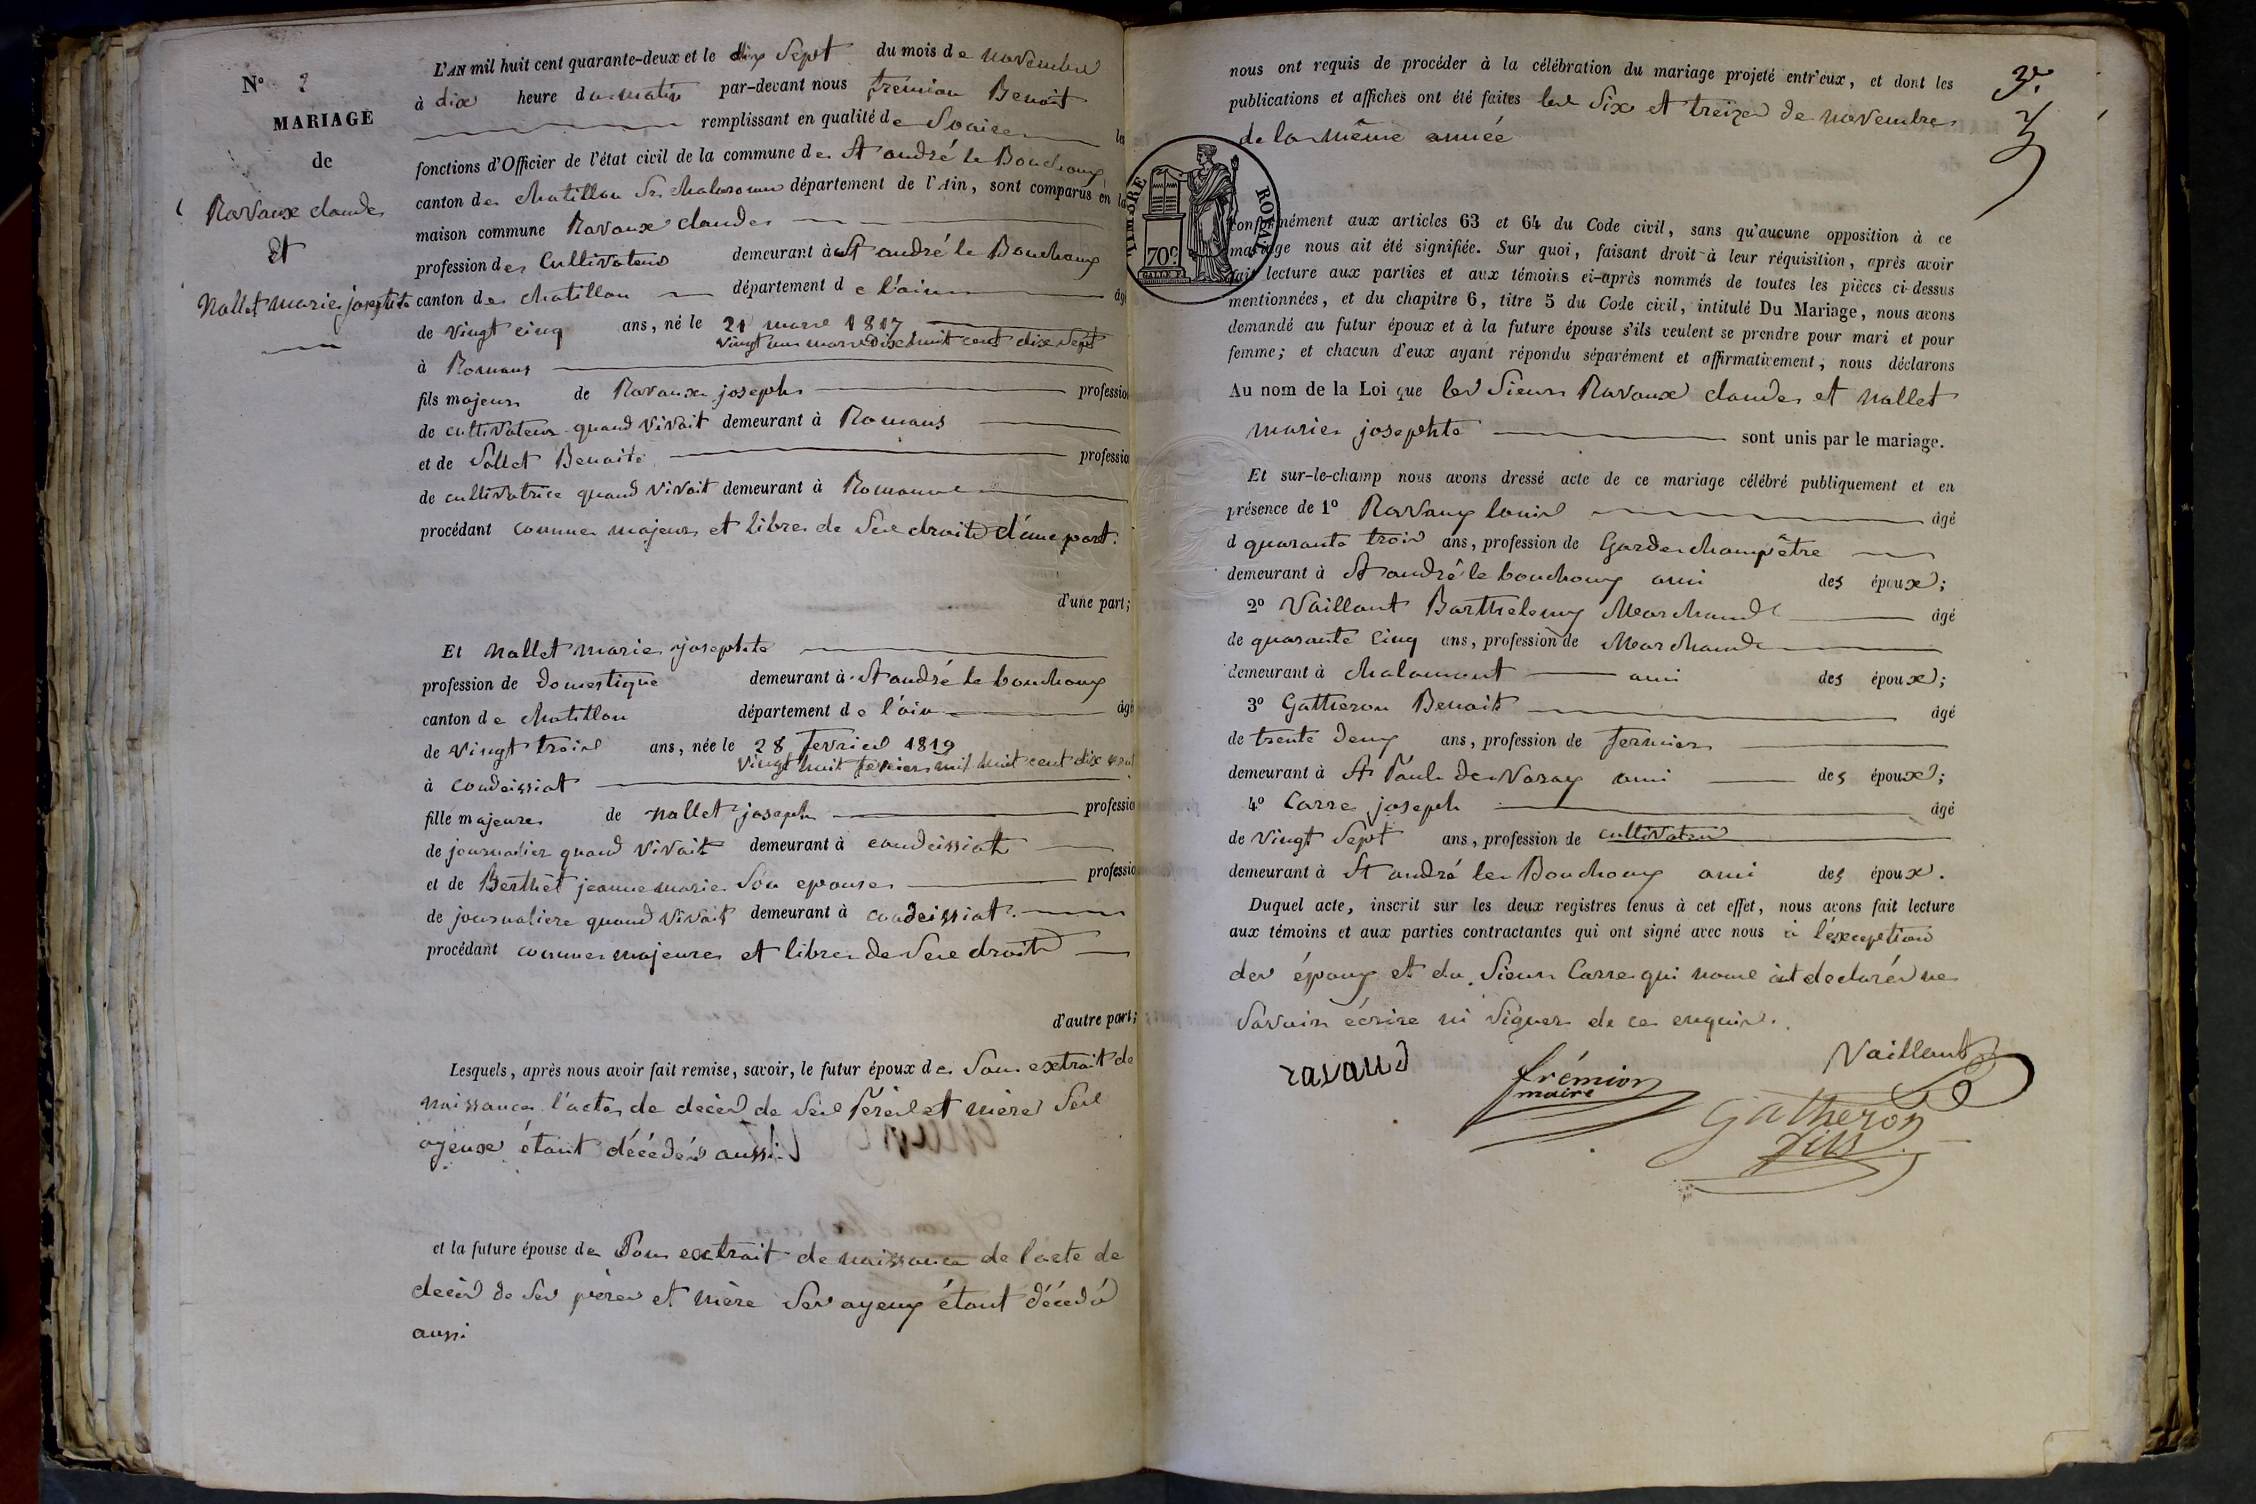 N° 2
MARIAGE
de
Ravaux claude
Et
Nallet marie josephte
L'AN mil huit cent quarante-deux et le dix sept du mois de novembre
à dix heure du matin par-devant nous fremion Benoit
remplissant en qualité de Maire les
fonctions d'Officier de l'état civil de la commune de St andré le Bouchoux
canton de chatillon sr chalaronne département de l'Ain, sont comparus en la
maison commune Ravaux claude
profession de Cultivateur demeurant à St andré le Bouchoux
canton de chatillon département de l'ain âgé
de vingt cinq ans, né le 21 mars 1817
vingt un mars dix huit cent dix sept
à Romans
fils majeur de Ravaux joseph profession
de cultivateur quand vivait demeurant à Romans
et de Sallet Benoite profession
de cultivatrice quand vivait demeurant à Romans
procédant comme majeur et libre de ses droits d'une part.
d'une part;
Et Nallet marie josephte
profession de domestique demeurant à St andré le bouchoux
canton de chatillon département de l'ain âgé
de vingt trois ans, née le 28 fevrier 1819
vingt huit fevrier mil huit cent dix neuf
à condeissiat
fille majeure de nallet joseph profession
de journalier quand vivait demeurant à condeissiat
et de Berthet jeanne marie son epouse profession
de journaliere quand vivait demeurant à condeissiat
procédant comme majeure et libre de ses droits
d'autre part;
Lesquels, après nous avoir fait remise, savoir, le futur époux de son extrait de
naissance l'acte de décès de ses pères et mère ses
ayeux étant décédés aussi
et la future épouse de son extrait de naissance de l'acte de
décès de ses pères et mère ses ayeux étant décédé
aussi
nous ont requis de procéder à la célébration du mariage projeté entr'eux, et dont les
publications et affiches ont été faites les six et treize de novembre
de la même année
TIMBRE ROYAL
70c
conformément aux articles 63 et 64 du Code civil, sans qu'aucune opposition à ce
mariage nous ait été signifiée. Sur quoi, faisant droit à leur réquisition, après avoir
fait lecture aux parties et aux témoins ci-après nommés de toutes les pièces ci-dessus
mentionnées, et du chapitre 6, titre 5 du Code civil, intitulé Du Mariage, nous avons
demandé au futur époux et à la future épouse s'ils veulent se prendre pour mari et pour
femme; et chacun d'eux ayant répondu séparément et affirmativement, nous déclarons
Au nom de la Loi que les Sieurs Ravaux claude et nallet
marie josephte sont unis par le mariage.
Et sur-le-champ nous avons dressé acte de ce mariage célébré publiquement et en
présence de 1° Ravaux louis âgé
d quarante trois ans, profession de Garde champêtre
demeurant à St andré le bouchoux ami des époux;
2° Vaillant Barthelemy Marchand âgé
de quarante cinq ans, profession de Marchand
demeurant à chalamont ami des époux;
3° Gatheron Benoit âgé
de trente deux ans, profession de fermier
demeurant à St Paul de Varax ami des époux;
4° Carre joseph âgé
de vingt sept ans, profession de cultivateur
demeurant à St andré le Bouchoux ami des époux.
Duquel acte, inscrit sur les deux registres tenus à cet effet, nous avons fait lecture
aux témoins et aux parties contractantes qui ont signé avec nous à l'exception
des époux et du Sieur Carre qui nous ont declarés ne
savoir écrire ni signer de ce enquis.
ravaud
frémion
maire
Vaillant
gatheron
fils